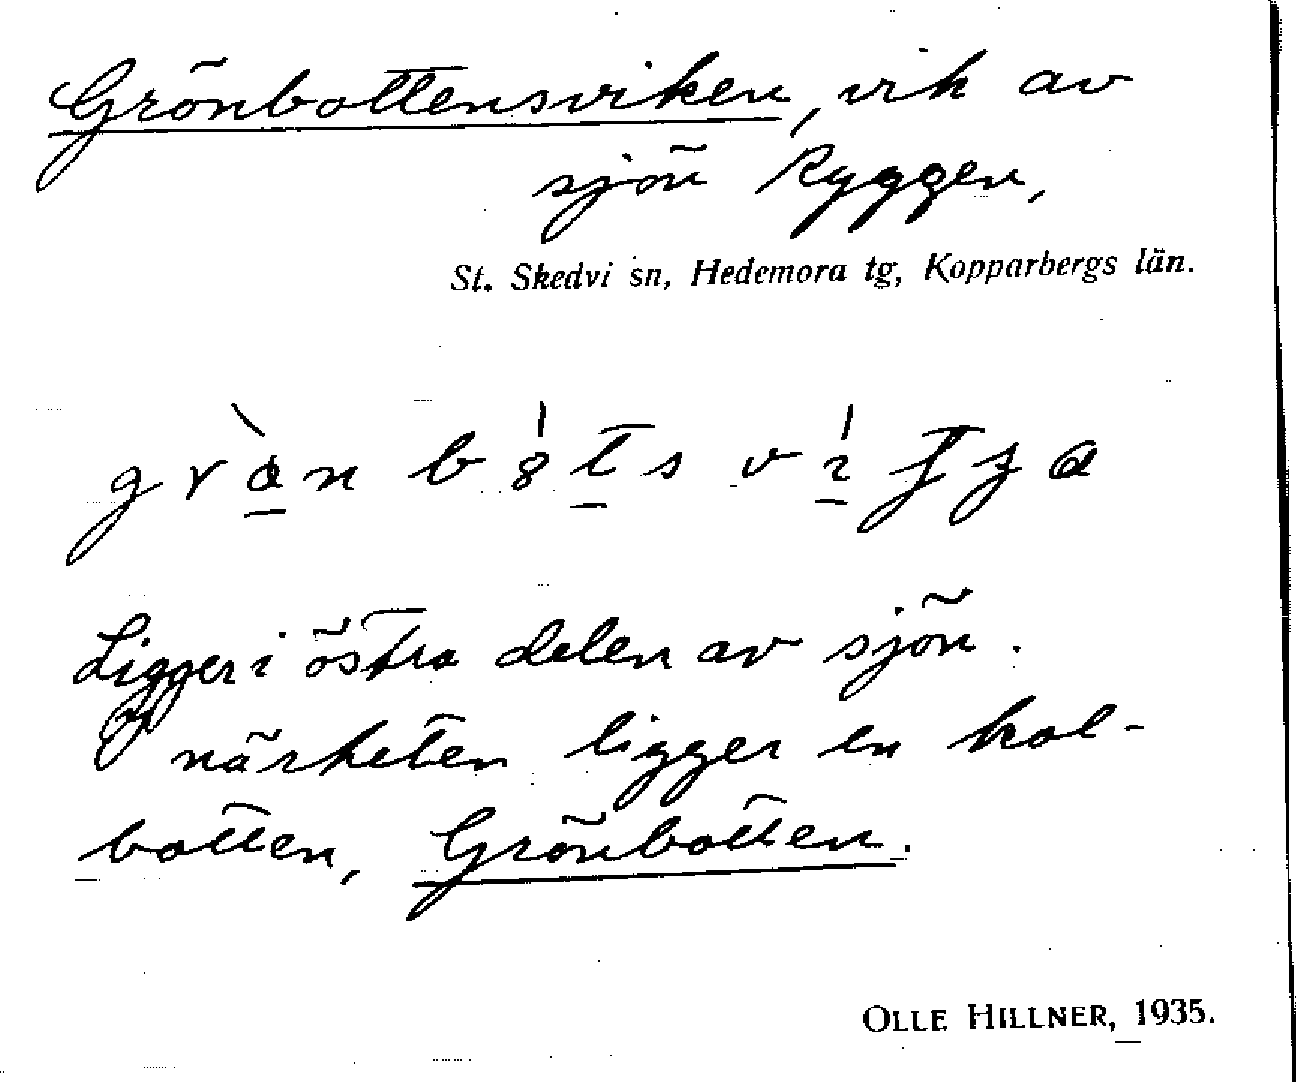 Grönbottensviken, vik av
sjön Ryggen,
St. Skedvi sn, Hedemora tg, Kopparbergs län.
Ligger i östra delen av sjön.
I närheten ligger en kol-
botten, Grönbotten.
OLLE HILLNER, 1935.